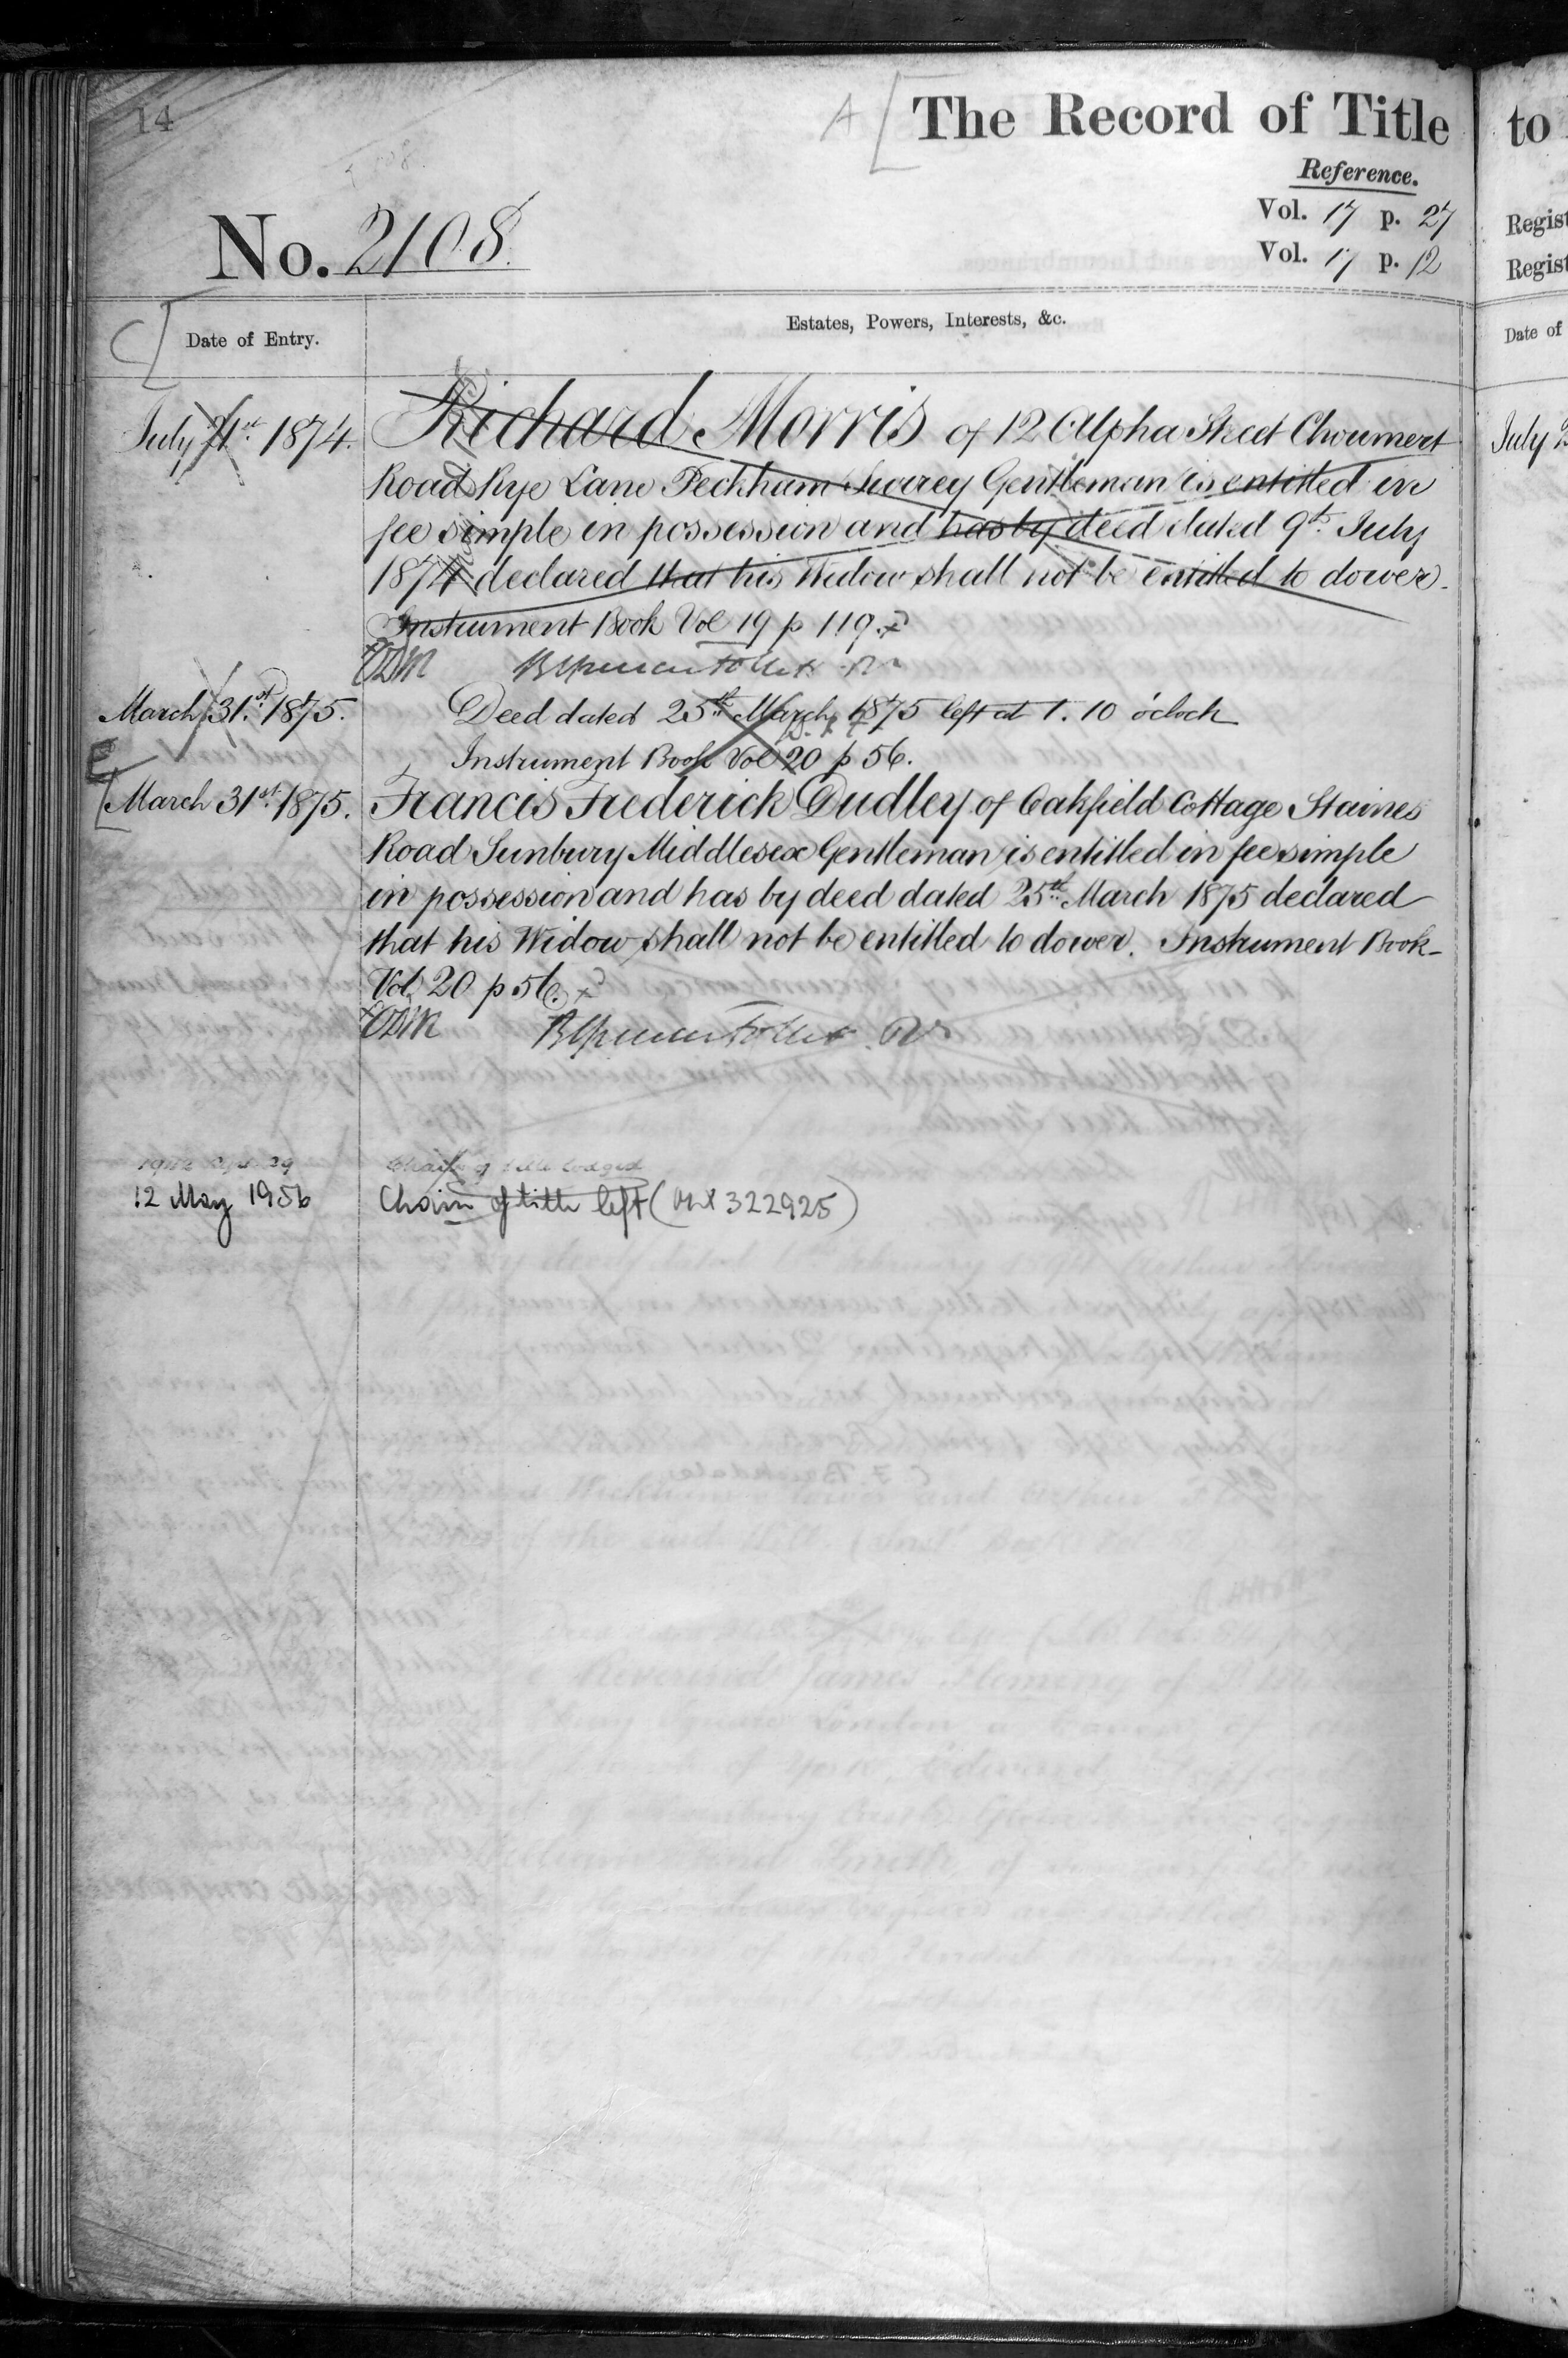 14
A
The Record of Title
Reference.
Vol. 17 p. 27
Vol. 17 p. 12
No. 2108.
C
Date of Entry.
Estates, Powers, Interests, &c.
July 21st 1874.
Richard Morris of 12 Alpha Street Choumert
Road Rye Lane Peckham Surrey Gentleman is entitled in
fee simple in possession and has by deed dated 9th July
1874 declared that his Widow shall not be entitled to dower.
Instrument Book Vol 19 p 119.
March 31st 1875.
Deed dated 25th March 1875 left at 1.10 o'clock
Instrument Book Vol 20 p 56.
E
March 31st 1875.
Francis Frederick Dudley of Oakfield Cottage Staines
Road Sunbury Middlesex Gentleman is entitled in fee simple
in possession and has by deed dated 25th March 1875 declared
that his Widow shall not be entitled to dower. Instrument Book
Vol. 20 p 56.
Chain of title lodged
12 May 1956
Chain of title left (MX 322925)
to
Regist
Regist
Date of
July